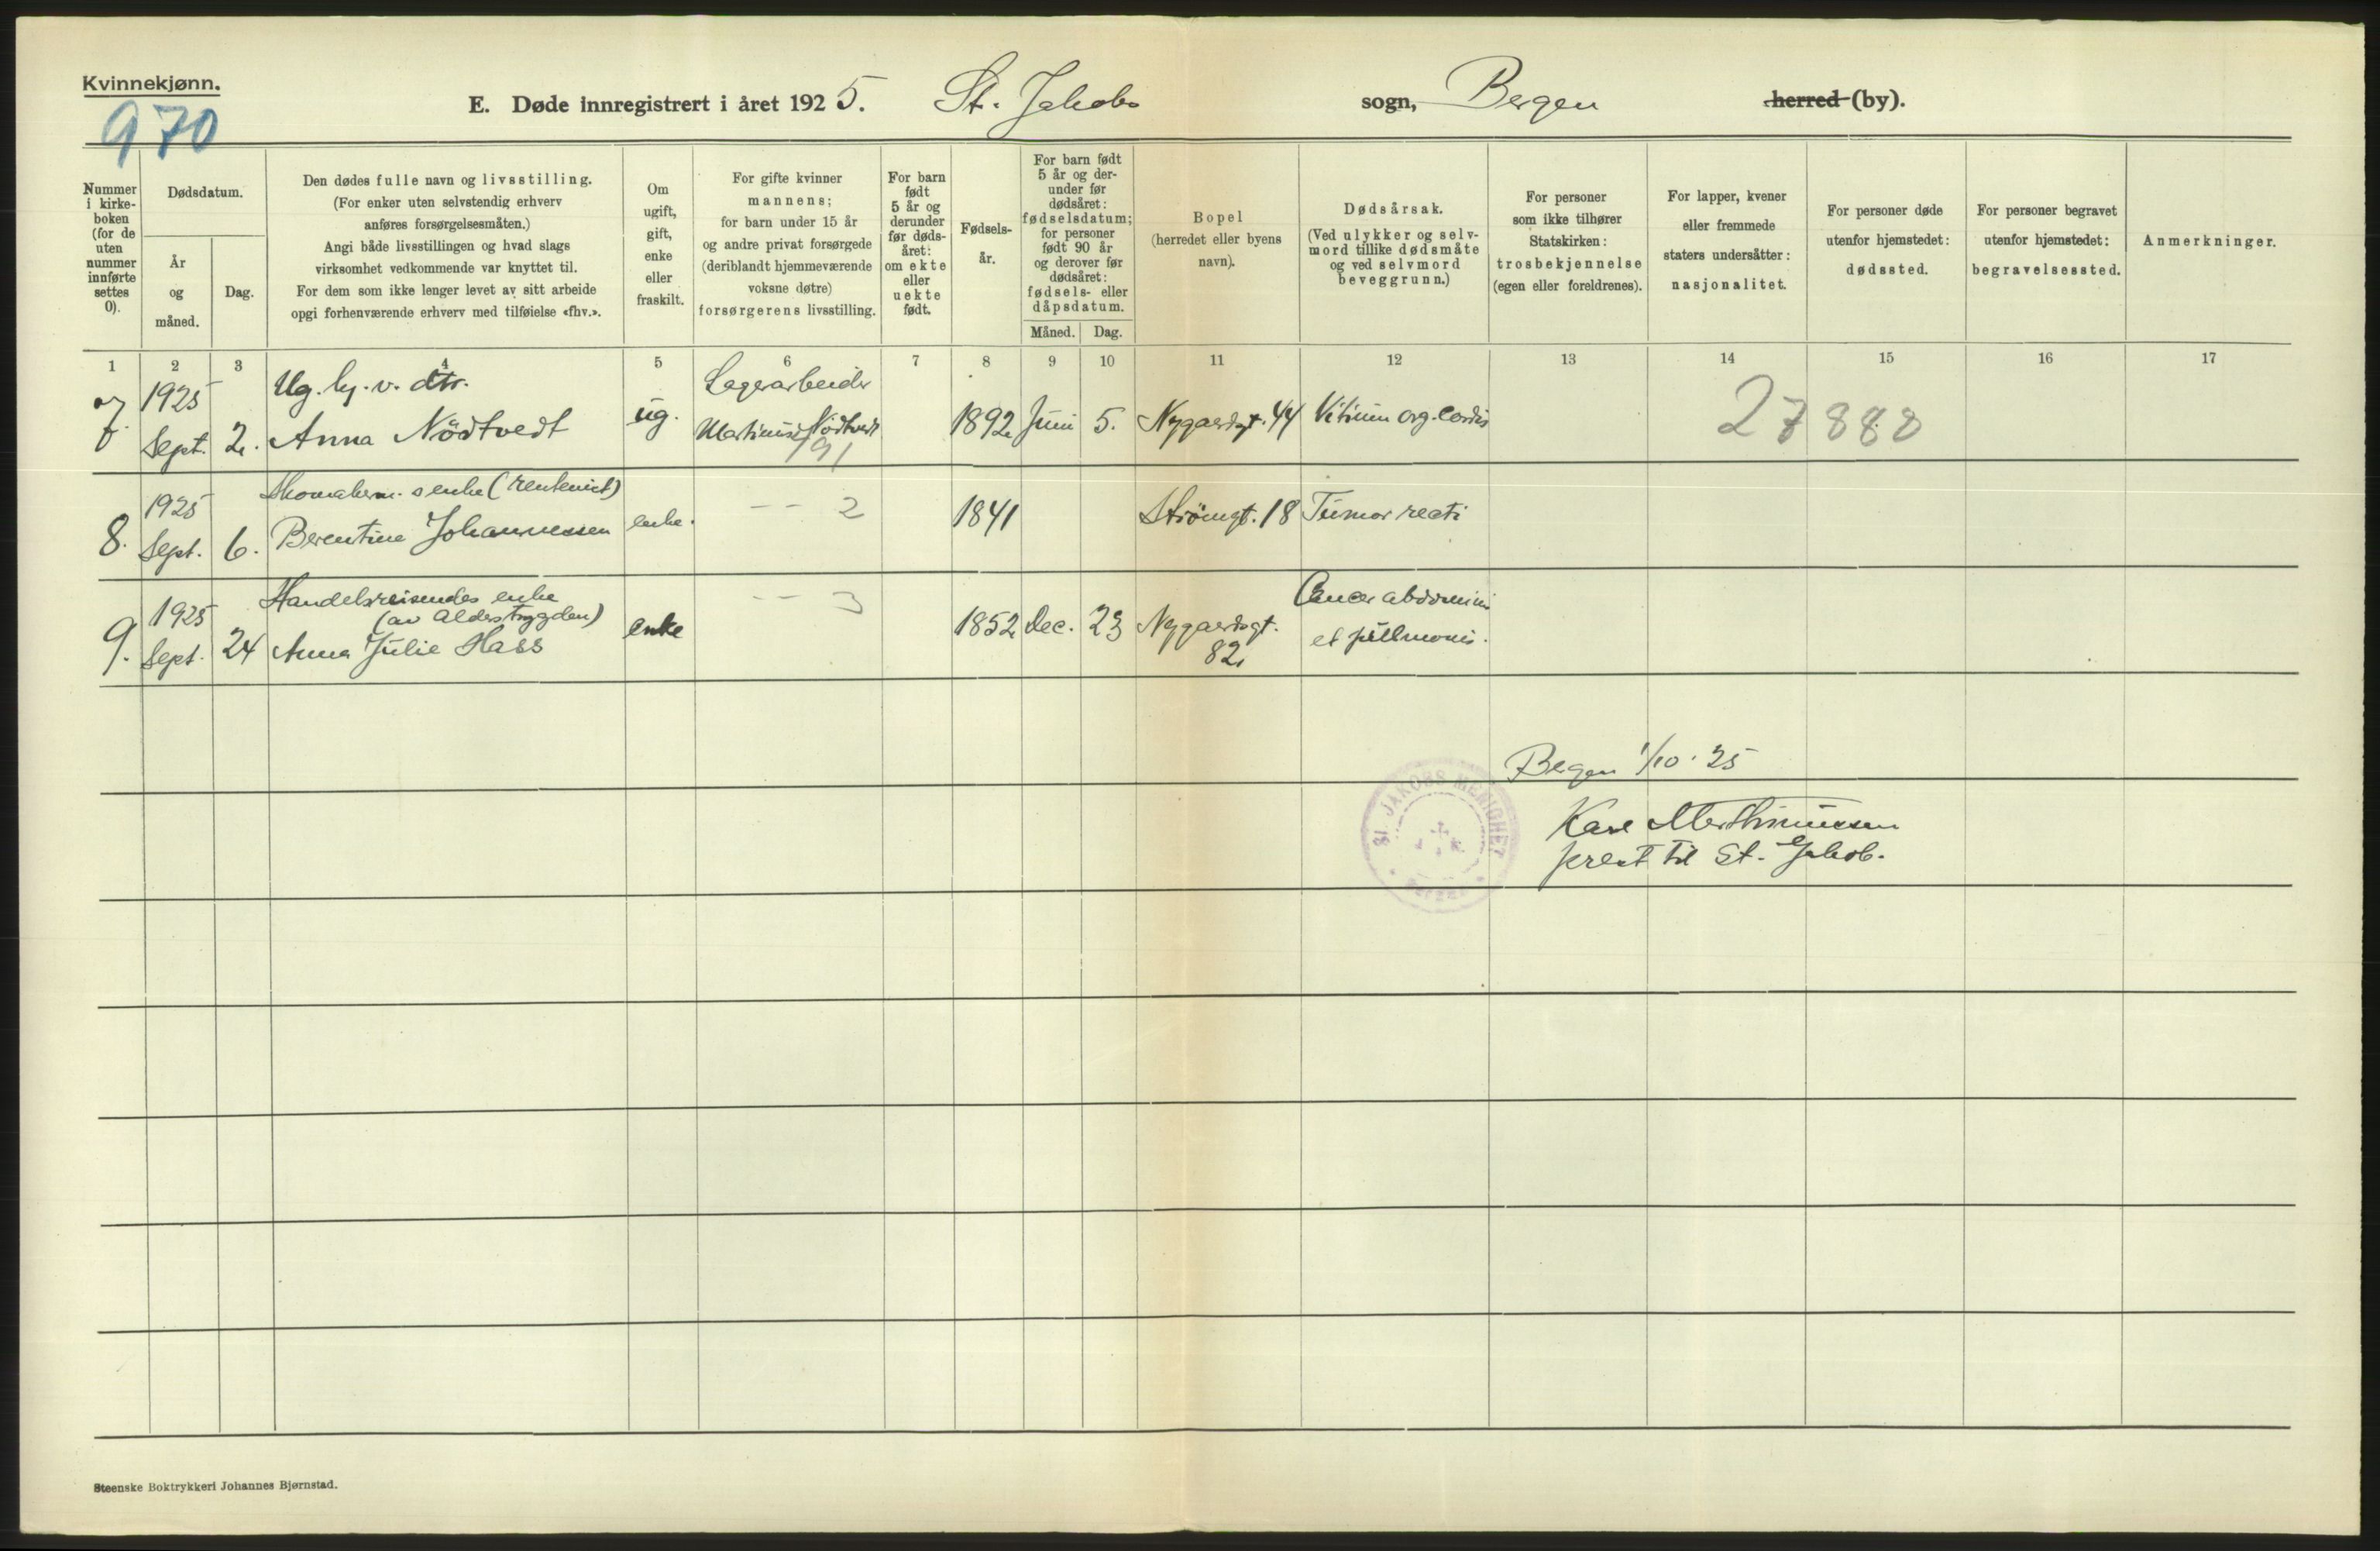 Kvinnekjønn.
970
E. Døde innregistrert i året 1925. St. Jakobs sogn, Bergen herred (by).
Nummer i kirke-boken (for de uten nummer innførte settes 0).
Dødsdatum.
År og måned.
Dag.
Den dødes fulle navn og livsstilling.
(For enker uten selvstendig erhverv
anføres forsørgelsesmåten.)
Angi både livsstillingen og hvad slags
virksomhet vedkommende var knyttet til.
For dem som ikke lenger levet av sitt arbeide
opgi forhenværende erhverv med tilføielse «fhv.».
Om
ugift,
gift,
enke
eller
fraskilt.
For gifte kvinner
mannens;
for barn under 15 år
og andre privat forsørgede
(deriblandt hjemmeværende
voksne døtre)
forsørgerens livsstilling.
For barn
født
5 år og
derunder
før døds-
året:
om ekte
eller
uekte
født.
Fødsels-
år.
For barn født
5 år og der-
under før
dødsåret:
fødselsdatum;
for personer
født 90 år
og derover før
dødsåret:
fødsels- eller
dåpsdatum.
Måned. Dag.
Bopel
(herredet eller byens
navn).
Dødsårsak.
(Ved ulykker og selv-
mord tillike dødsmåte
og ved selvmord
beveggrunn.)
For personer
som ikke tilhører
Statskirken:
trosbekjennelse
(egen eller foreldrenes).
For lapper, kvener
eller fremmede
staters undersåtter:
nasjonalitet.
For personer døde
utenfor hjemstedet:
dødssted.
For personer begravet
utenfor hjemstedet:
begravelsessted.
Anmerkninger.
1 2 3 4 5 6 7 8 9 10 11 12 13 14 15 16 17
Ug. hj. v. dtr. Lagerarbeider
7. 1925 Sept. 2. Anna Nödtvedt ug. Martinus Nödtvedt 1892 Juni 5. Nygaardsgt. 44 Vitium org. Cordis
191
27888
Skomakerm.s enke (rentenist)
8. 1925 Sept. 6. Berentine Johannessen enke. -- 2 1841 Strömgt. 18 Tumor recti
Handelsreisendes enke
(av Alderstrygden)
9. 1925 Sept. 24 Anna Julie Hass enke -- 3 1852 Dec. 23 Nygaardsgt. 82 Cancer abdominis
et pulmonis.
Bergen 1/10 · 25
ST. JAKOBS MENIGHET
BERGEN
prest til St. Jakob.
Steenske Boktrykkeri Johannes Bjørnstad.